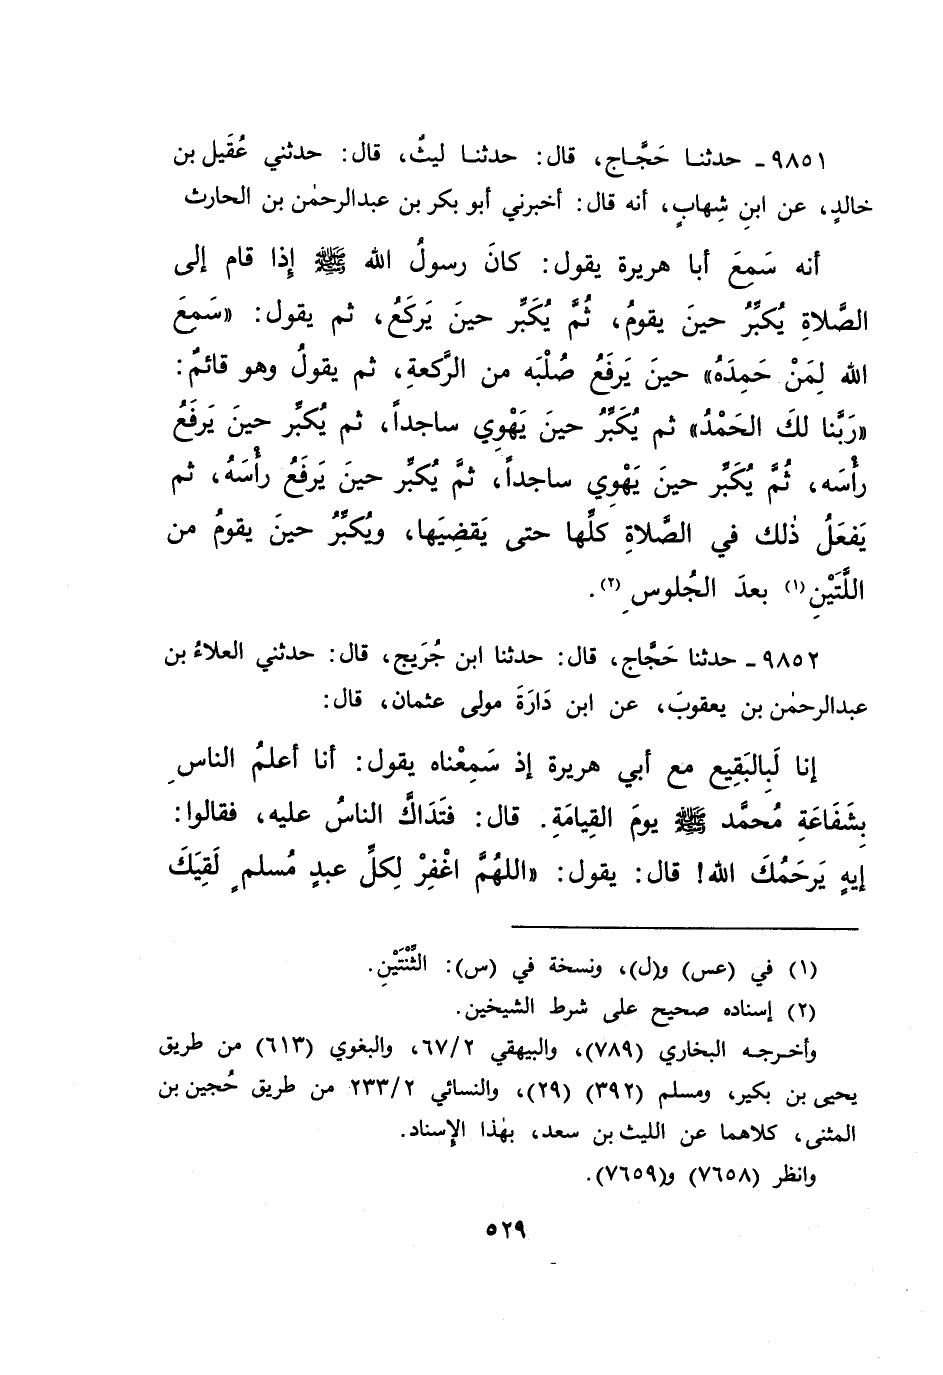 ٩٨٥١ـ حدثنـا حَجَّـاج، قال: حدثنـا ليثٌ، قال: حدثني عُقَيل بن
خالدٍ، عن ابنِ شِهابٍ، أنه قال: أخبرني أبو بكر بن عبدالرحمٰن بن الحارث
أنه سَمِعَ أبا هريرة يقول: كانَ رسولُ الله ﷺ إِذا قام إلى
الصَّلاةِ يُكبِّرُ حينَ يقومُ، ثُمَّ يُكَبِّر حينَ يَركَعُ، ثم يقول: «سَمِعَ
الله لِمَنْ حَمِدَهُ» حينَ يَرفَعُ صُلْبَه من الرَّكعةِ، ثم يقولُ وهو قائمٌ:
«رَبَّنا لكَ الحَمْدُ» ثم يُكَبِّرُ حينَ يَهْوِي ساجداً، ثم يُكبِّر حينَ يَرفَعُ
رأْسَه، ثُمَّ يُكَبِّر حينَ يَهْوِي ساجداً، ثمَّ يُكبِّر حينَ يَرفَعُ رأْسَهُ، ثم
يَفعَلُ ذٰلك في الصَّلاةِ كلِّها حتى يَقضِيَها، ويُكبِّرُ حينَ يقومُ من
اللَّتَيْنِ(١) بعدَ الجُلوسِ(٢).
٩٨٥٢ـ حدثنا حَجَّاج، قال: حدثنا ابن جُرَيج، قال: حدثني العلاءُ بن
عبدالرحمٰن بن يعقوبَ، عن ابن دَارَةَ مولى عثمان، قال:
إنا لَبِالبَقِيع مع أبي هريرة إذ سَمِعْناه يقول: أنا أعلمُ الناسِ
بِشَفَاعَةِ مُحمَّد ﷺ يومَ القِيامَةِ. قال: فتَدَاكَّ الناسُ عليه، فقالوا:
إيهٍ يَرحَمُكَ الله! قال: يقول: «اللهُمَّ اغْفِرْ لِكلِّ عبدٍ مُسلمٍ لَقِيَكَ
(١) في (عس) و(ل)، ونسخة في (س): الثِّنْتَيْنِ.
(٢) إسناده صحيح على شرط الشيخين.
وأخـرجـه البخاري (٧٨٩)، والبيهقي ٦٧/٢، والبغوي (٦١٣) من طريق
يحيى بن بكير، ومسلم (٣٩٢) (٢٩)، والنسائي ٢٣٣/٢ من طريق حُجين بن
المثنى، كلاهما عن الليث بن سعد، بهٰذا الإِسناد.
وانظر (٧٦٥٨) و(٧٦٥٩).
٥٢٩